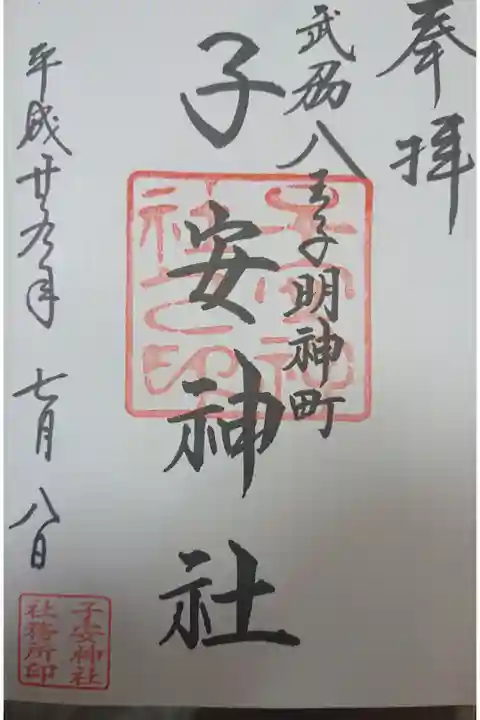 奉拝
武州八王子明神町
子安神社
平成廿九年 七月 八日
子安神社
社務所印